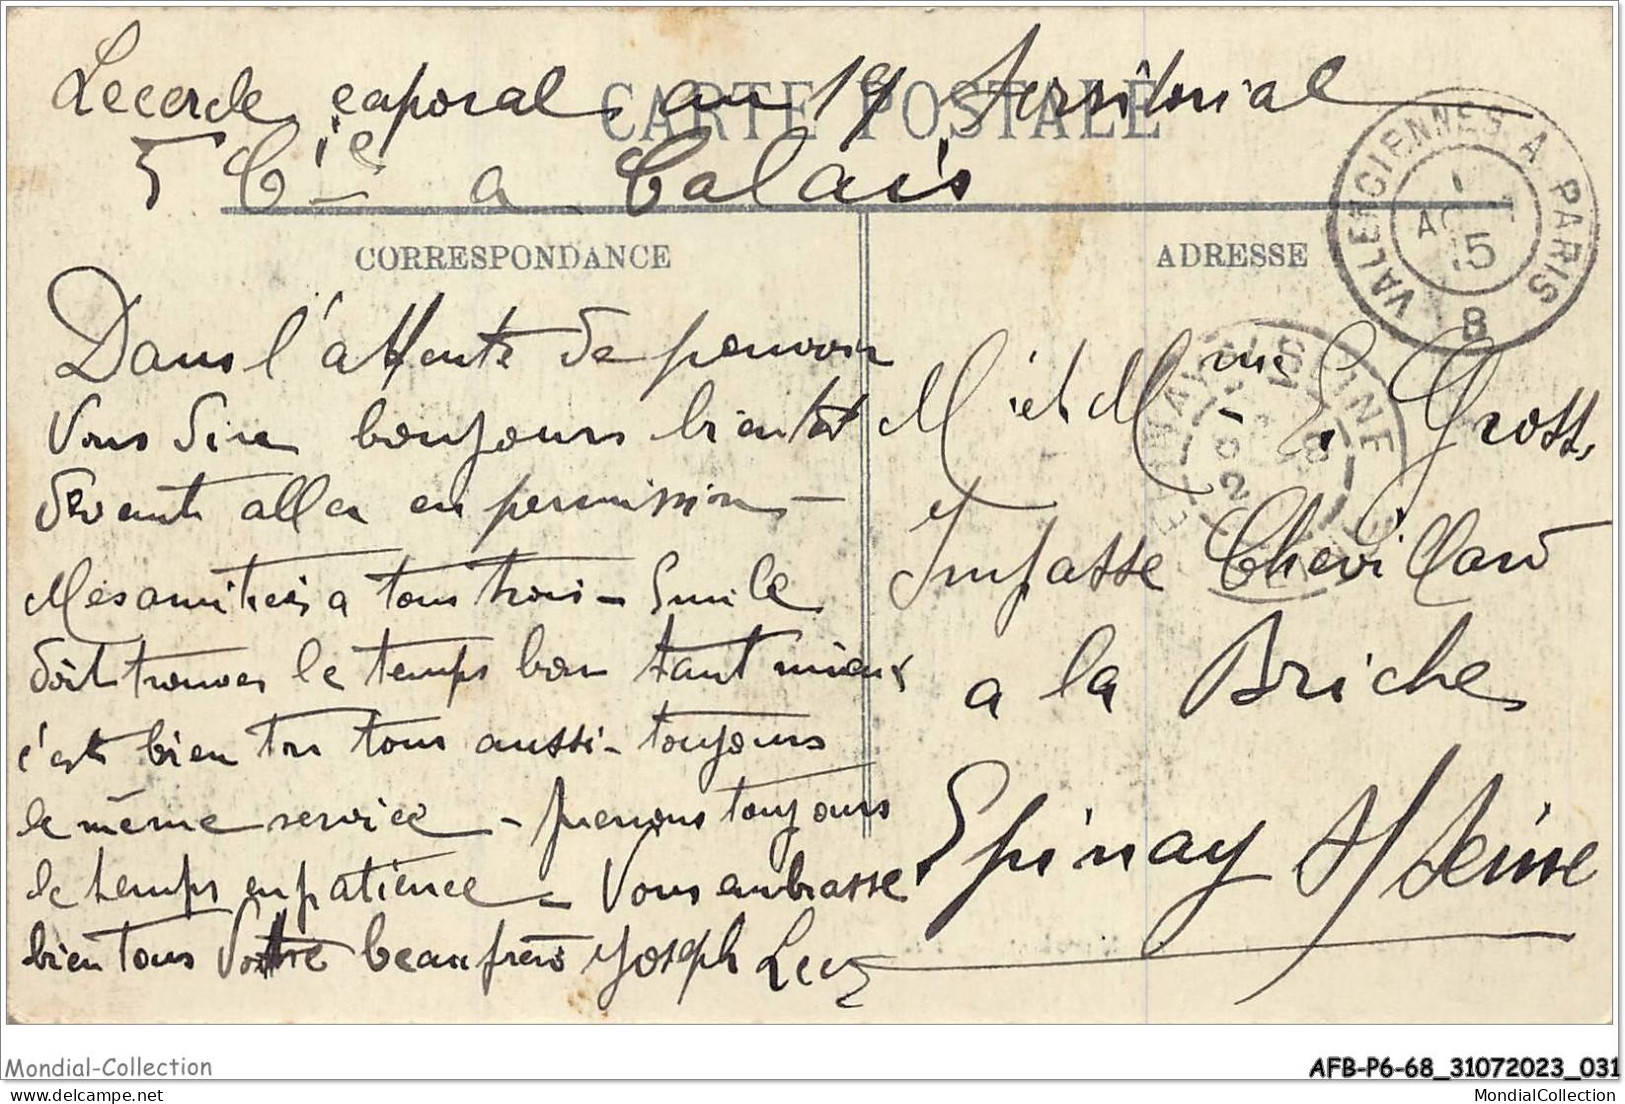 Lecerele caporal au 19 Territorial
CARTE POSTALE
5 Cie a Calais
VALENCIENNES A PARIS
AOUT
15
B
CORRESPONDANCE
ADRESSE
Dans l'attente de pouvoir
vous dire bonjours bientot
devant aller en permission -
Mes amitiés a tous trois - Emile
doit trouver le temps bon tant mieux
c'est bien tou tour aussi - toujours
le même service - prenons toujours
le temps en patience - Vous embrasse
bien tous Votre beaufrère Joseph
M. et Mme E. Gross,
Impasse Chevillard
a la Briche
Epinay s/ Seine
Mondial-Collection
AFB-P6-68_31072023_031
MondialCollection